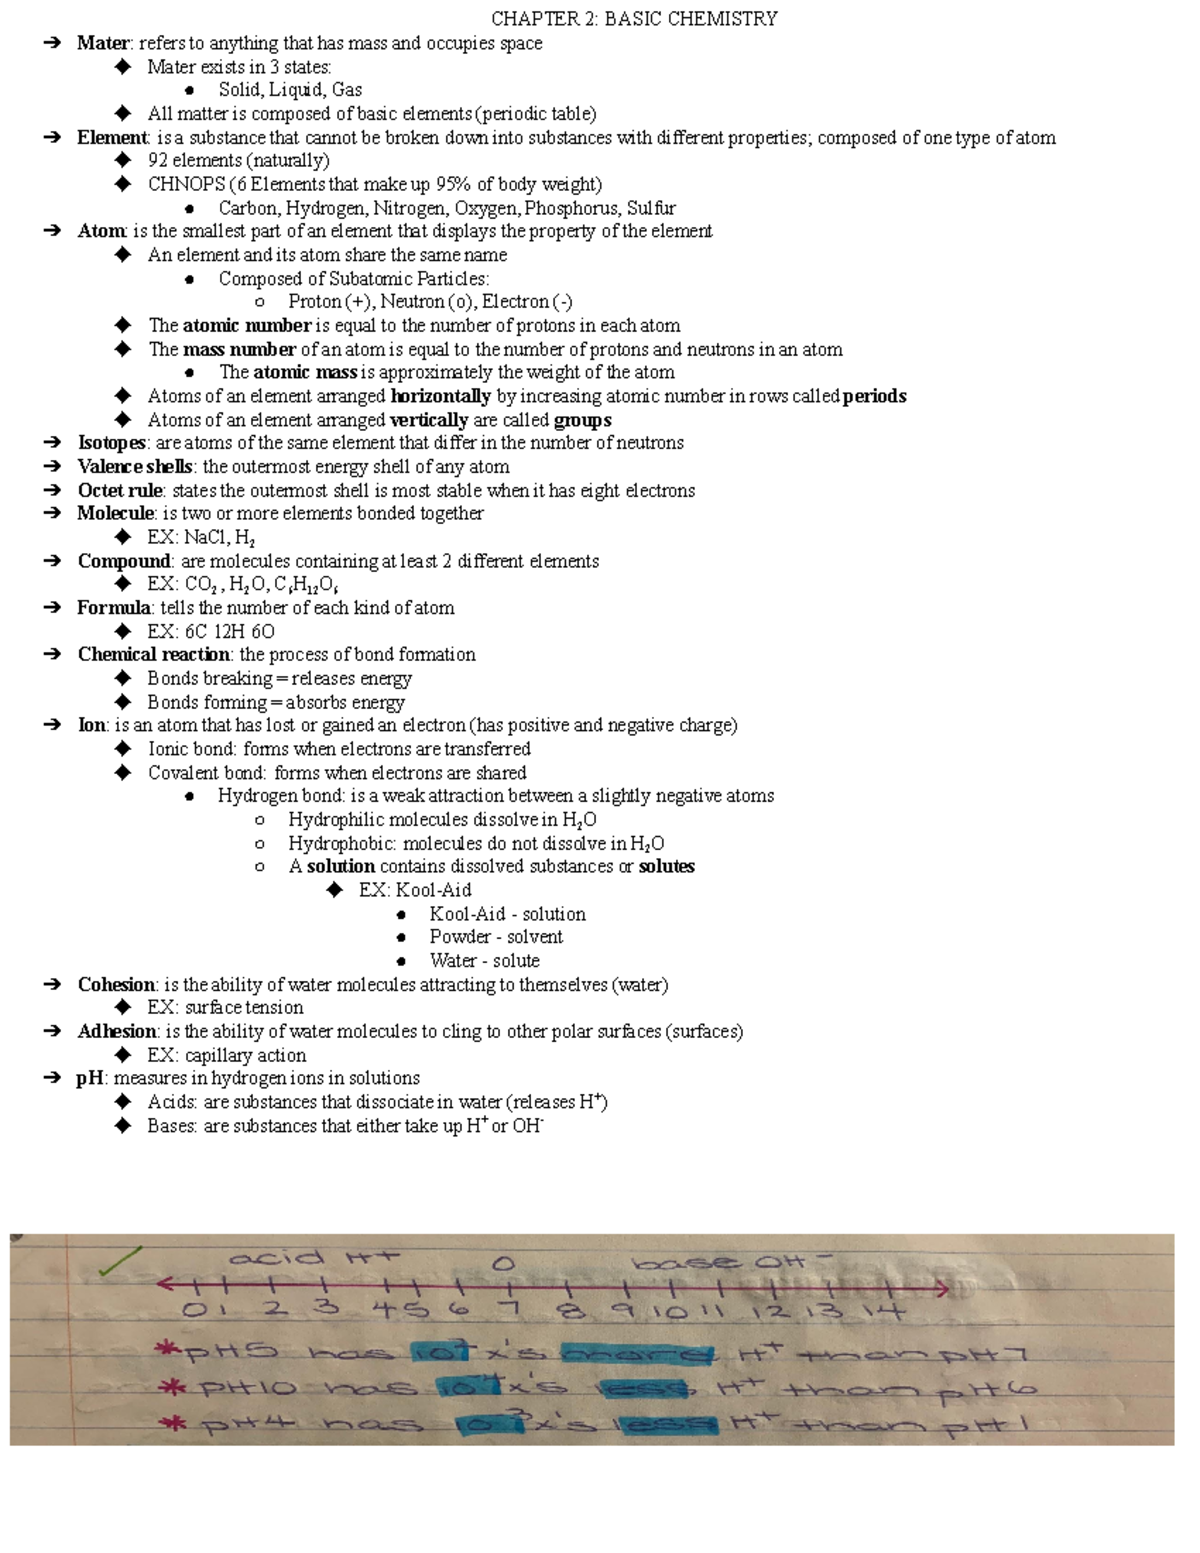 CHAPTER 2: BASIC CHEMISTRY
➔ Mater: refers to anything that has mass and occupies space
◆ Mater exists in 3 states:
● Solid, Liquid, Gas
◆ All matter is composed of basic elements (periodic table)
➔ Element: is a substance that cannot be broken down into substances with different properties; composed of one type of atom
◆ 92 elements (naturally)
◆ CHNOPS (6 Elements that make up 95% of body weight)
● Carbon, Hydrogen, Nitrogen, Oxygen, Phosphorus, Sulfur
➔ Atom: is the smallest part of an element that displays the property of the element
◆ An element and its atom share the same name
● Composed of Subatomic Particles:
○ Proton (+), Neutron (o), Electron (-)
◆ The atomic number is equal to the number of protons in each atom
◆ The mass number of an atom is equal to the number of protons and neutrons in an atom
● The atomic mass is approximately the weight of the atom
◆ Atoms of an element arranged horizontally by increasing atomic number in rows called periods
◆ Atoms of an element arranged vertically are called groups
➔ Isotopes: are atoms of the same element that differ in the number of neutrons
➔ Valence shells: the outermost energy shell of any atom
➔ Octet rule: states the outermost shell is most stable when it has eight electrons
➔ Molecule: is two or more elements bonded together
◆ EX: NaCl, H₂
➔ Compound: are molecules containing at least 2 different elements
◆ EX: CO₂ , H₂O, C₆H₁₂O₆
➔ Formula: tells the number of each kind of atom
◆ EX: 6C 12H 6O
➔ Chemical reaction: the process of bond formation
◆ Bonds breaking = releases energy
◆ Bonds forming = absorbs energy
➔ Ion: is an atom that has lost or gained an electron (has positive and negative charge)
◆ Ionic bond: forms when electrons are transferred
◆ Covalent bond: forms when electrons are shared
● Hydrogen bond: is a weak attraction between a slightly negative atoms
○ Hydrophilic molecules dissolve in H₂O
○ Hydrophobic: molecules do not dissolve in H₂O
○ A solution contains dissolved substances or solutes
◆ EX: Kool-Aid
● Kool-Aid - solution
● Powder - solvent
● Water - solute
➔ Cohesion: is the ability of water molecules attracting to themselves (water)
◆ EX: surface tension
➔ Adhesion: is the ability of water molecules to cling to other polar surfaces (surfaces)
◆ EX: capillary action
➔ pH: measures in hydrogen ions in solutions
◆ Acids: are substances that dissociate in water (releases H⁺)
◆ Bases: are substances that either take up H⁺ or OH⁻
acid H⁺ 0 base OH⁻
0 1 2 3 4 5 6 7 8 9 10 11 12 13 14
* pH5 has 10² x's more H⁺ than pH7
* pH10 has 10⁴ x's less H⁺ than pH6
* pH4 has 10³ x's less H⁺ than pH1